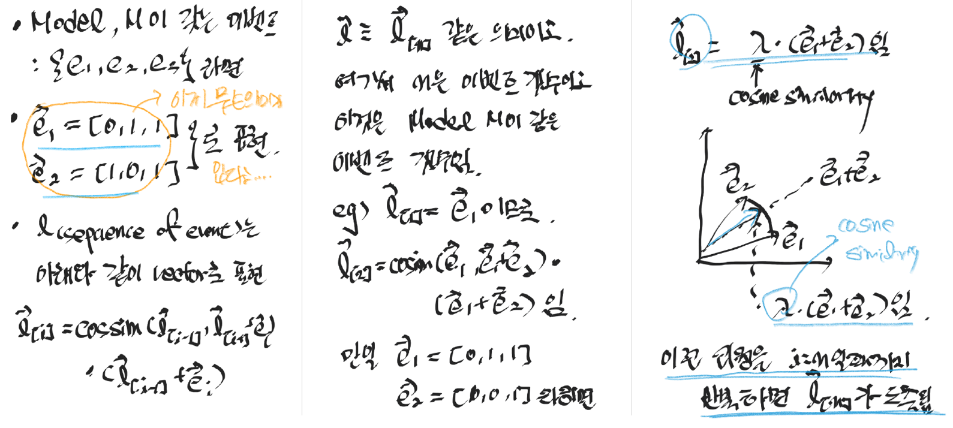 • Model, M이 갖는 이벤트
: {e₁, e₂, e₃} 라면
이게 무슨의미
• e⃗₁ = [0,1,1]
e⃗₂ = [1,0,1] } 로 표현.
• l(sequence of event)는
아래와 같이 vector로 표현
l⃗[i] = cossim(l⃗[i-1], l⃗[i-1]+e⃗i)
• (l⃗[i-1] + e⃗i)
l⃗ ≡ l⃗[n] 같은 의미이고.
여기서 n은 이벤트 개수이고
이것은 Model M이 갖은
이벤트 개수임.
eg) l⃗[1] = e⃗₁ 이므로.
l⃗[2] = cosim(e⃗₁, e⃗₁+e⃗₂) •
(e⃗₁+e⃗₂) 임.
만약 e⃗₁ = [0,1,1]
e⃗₂ = [0,0,1] 라하면
l⃗[2] = λ • (e⃗₁+e⃗₂) 임
cosine similarity
e⃗₂
e⃗₁+e⃗₂
e⃗₁
cosine
similarity
λ • (e⃗₁+e⃗₂) 임.
이런 과정은 i=n일때까지
반복하면 l⃗[n]가 도출됨